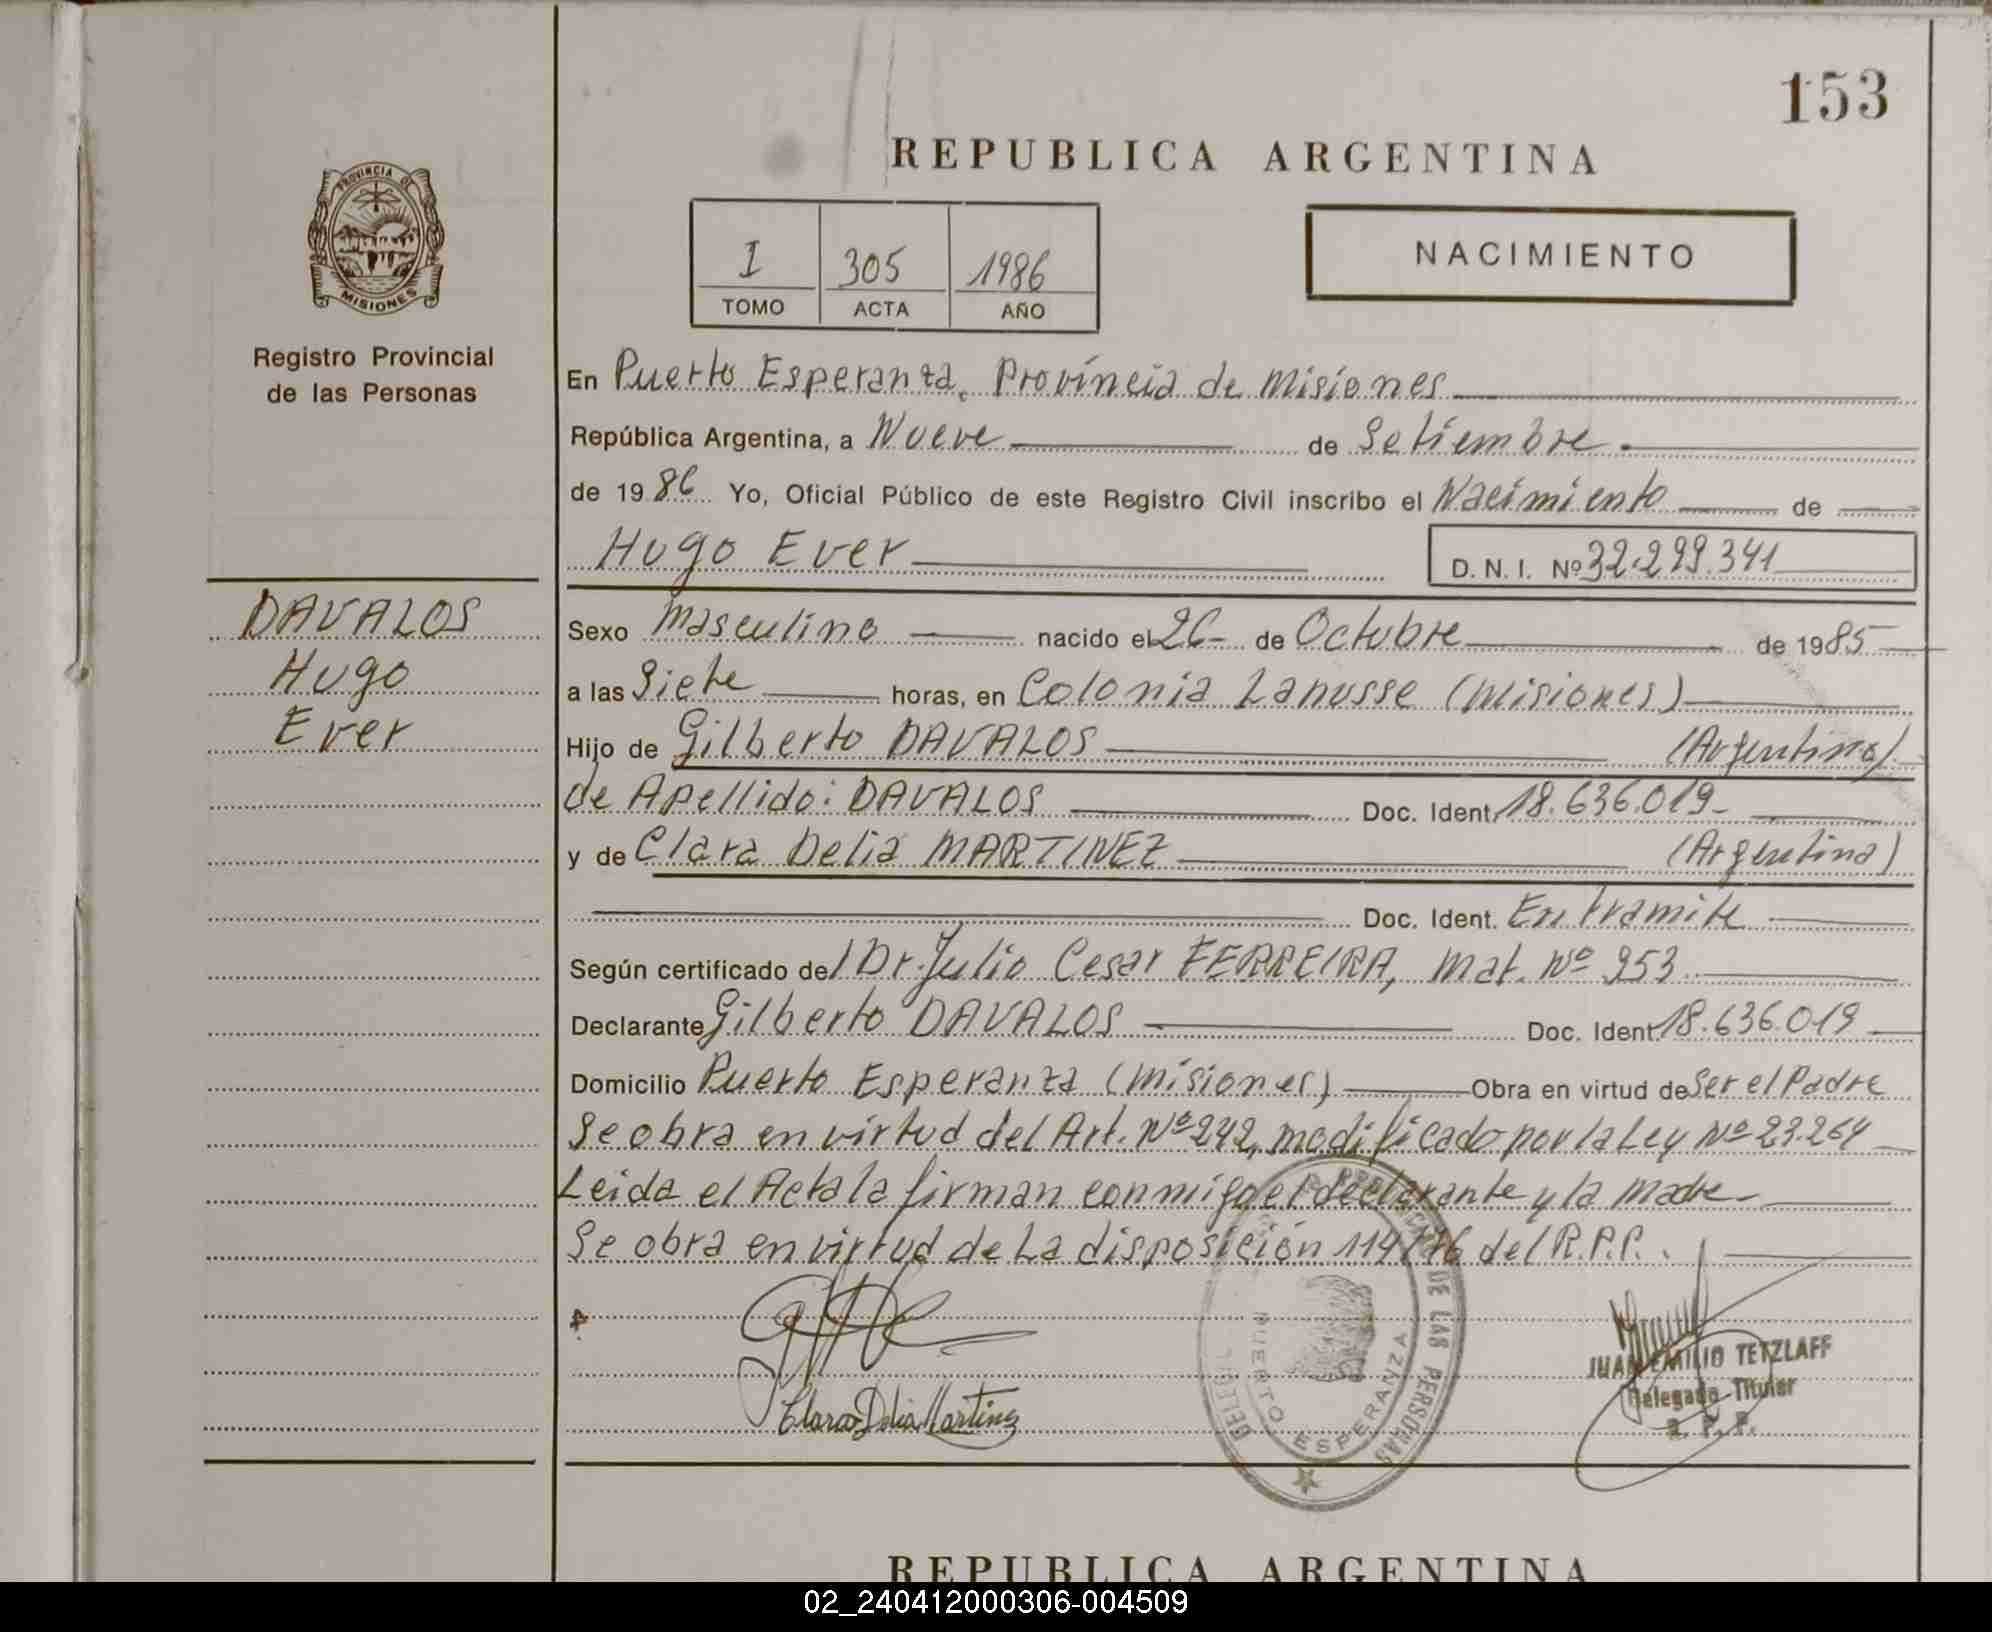 153
REPUBLICA ARGENTINA
PROVINCIA DE
MISIONES
Registro Provincial
de las Personas
I 305 1986
TOMO ACTA AÑO
NACIMIENTO
En Puerto Esperanza, Província de Misiones
República Argentina, a Nueve de Setiembre.
de 1986 Yo, Oficial Público de este Registro Civil inscribo el Nacimiento de
Hugo Ever D.N.I. Nº 32.299.341
DAVALOS
Hugo
Ever
Sexo Masculino nacido el 26- de Octubre de 1985
a las Siete horas, en Colonia Lanusse (Misiones)
Hijo de Gilberto DAVALOS (Argentino)
de Apellido: DAVALOS Doc. Ident. 18.636.019-
y de Clara Delia MARTINEZ (Argentina)
Doc. Ident. En tramite
Según certificado de l Dr. Julio Cesar FERREIRA, Mat. Nº 953
Declarante Gilberto DAVALOS Doc. Ident. 18.636.019
Domicilio Puerto Esperanza (Misiones) Obra en virtud de Ser el Padre
Se obra en virtud del Art. Nº 242, modificado por la Ley Nº 23.264
Leida el Acta la firman conmigo el declarante y la Madre-
Se obra en virtud de La disposición 114/76 del R.P.P.
Clara Delia Martinez
DE LAS PERSONAS
PUERTO ESPERANZA
JUAN EMILIO TETZLAFF
Delegado Titular
R. P. P.
REPUBLICA ARGENTINA
02_240412000306-004509